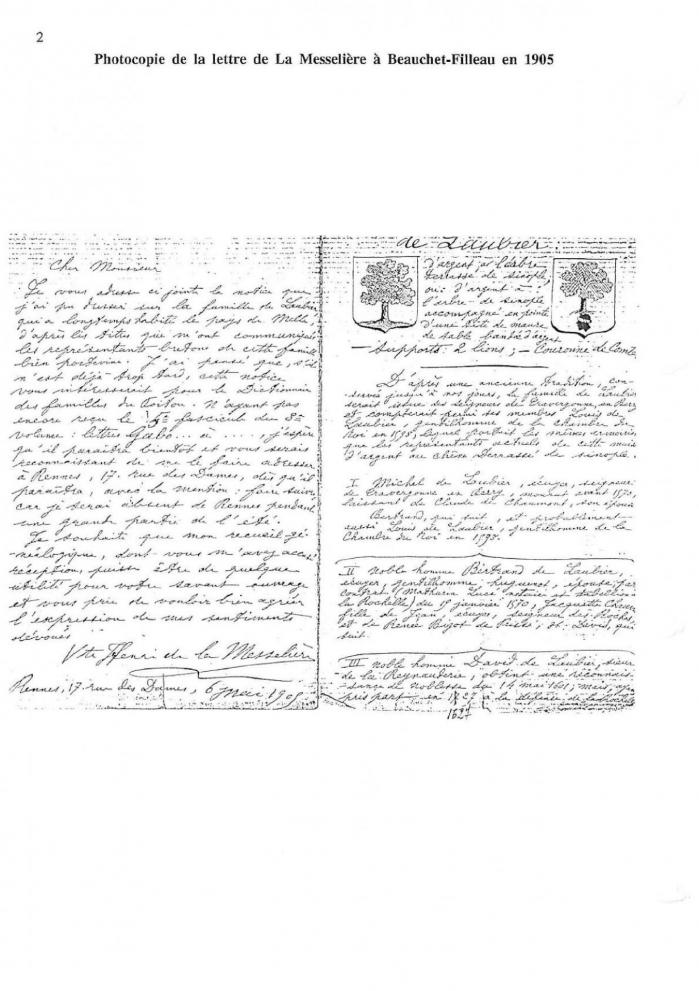 2
Photocopie de la lettre de La Messelière à Beauchet-Filleau en 1905
Cher Monsieur
Je vous adresse ci joint la notice que
j'ai pu dresser sur la famille de Laubier
qui a longtemps habité le pays de Melle,
d'après les titres que m'ont communiqués
les représentants bretons de cette famille
bien poitevine. J'ai pensé que, s'il
n'est déjà trop tard, cette notice
vous intéresserait pour le Dictionnaire
des familles du Poitou. N'ayant pas
encore reçu le 5e fascicule du 3e
volume: lettres Gabo... a ....., j'espère
qu'il paraîtra bientôt et vous serais
reconnaissant de me le faire adresser
à Rennes, 17. rue des Dames, dès qu'il
paraîtra, avec la mention: faire suivre
car je serai absent de Rennes pendant
une grande partie de l'été.
Je souhaite que mon recueil gé-
néalogique, dont vous m'avez accusé
réception, puisse être de quelque
utilité pour votre savant ouvrage
et vous prie de vouloir bien agréer
l'expression de mes sentiments
dévoués
Vte Henri de la Messelière
Rennes, 17. rue des Dames, 6 mai 1905
de Laubier
d'argent à l'arbre
terrassé de sinople,
ou: d'argent à
l'arbre de sinople
accompagné en pointe
d'une tête de maure
de sable
— Supports: 2 lions; — Couronne de Comte
D'après une ancienne tradition, con-
servée jusqu'à nos jours, la famille de Laubier
serait issue des seigneurs de en Berry
et compterait parmi ses membres Louis de
Laubier, gentilhomme de la chambre du
Roi en 1595, lequel portait les mêmes armoiries
que les représentants actuels de cette
d'argent au chêne terrassé de sinople.
I. Michel de Laubier, écuyer, seigneur
de en Berry, mourut avant 1570,
laissant de Claude de Chaumont, son épouse
Bertrand, qui suit, et probablement
aussi Louis de Laubier, gentilhomme de la
Chambre du Roi en 1595.
II Noble homme Bertrand de Laubier,
écuyer, gentilhomme huguenot, épousa, par
contrat (Mathurin notaire
la Rochelle) du janvier 1570, Jacquette
fille de Jean, écuyer, seigneur des
et de Renée Bigot de dt: David, qui
suit.
III Noble homme David de Laubier, sieur
de la Reynauderie, obtint une reconnais-
sance de noblesse du 14 mai 1601, mais, ay-
pris part en 1727 à la
1627